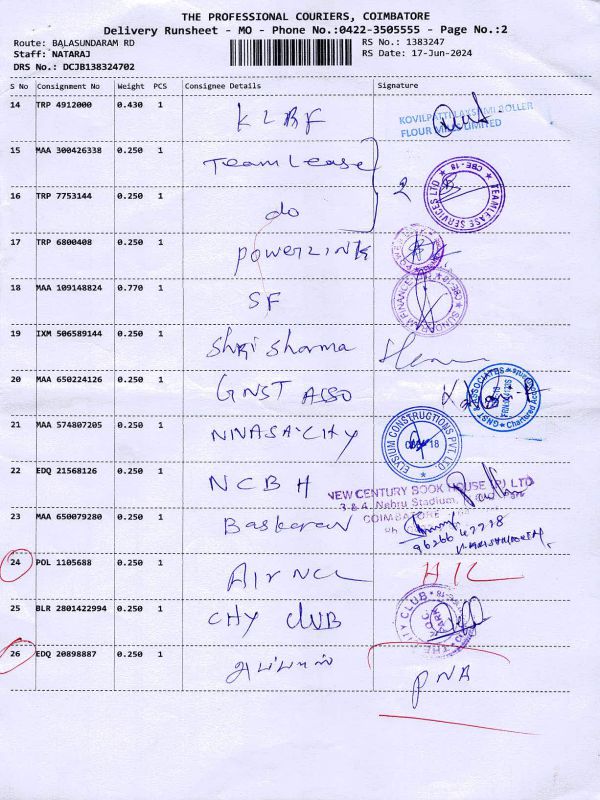 THE PROFESSIONAL COURIERS, COIMBATORE
Delivery Runsheet - MO - Phone No.:0422-3505555 - Page No.:2
Route: BALASUNDARAM RD
RS No.: 1383247
Staff: NATARAJ
RS Date: 17-Jun-2024
DRS No.: DCJB138324702
S No Consignment No Weight PCS Consignee Details Signature
14 TRP 4912000 0.430 1 KLRF
KOVILPATTI LAKSHMI ROLLER
FLOUR MILLS LIMITED
15 MAA 300426338 0.250 1 Teamlease
2
TEAMLEASE SERVICES LTD CBE-18
16 TRP 7753144 0.250 1 do
17 TRP 6800408 0.250 1 powerlink
18 MAA 109148824 0.770 1 SF
19 IXM 506589144 0.250 1 Shri Sharma
20 MAA 650224126 0.250 1 GNST Asso
GNST & ASSOCIATES Chartered
21 MAA 574807205 0.250 1
ELYSIUM CONSTRUCTIONS PVT. LTD 18
22 EDQ 21568126 0.250 1 NCBH
NEW CENTURY BOOK HOUSE (P) LTD
3 & 4, Nehru Stadium,
COIMBATORE
23 MAA 650079280 0.250 1 Baskaran
24 POL 1105688 0.250 1
25 BLR 2801422994 0.250 1 City Club
THE CITY CLUB
26 EDQ 20898887 0.250 1
PNA